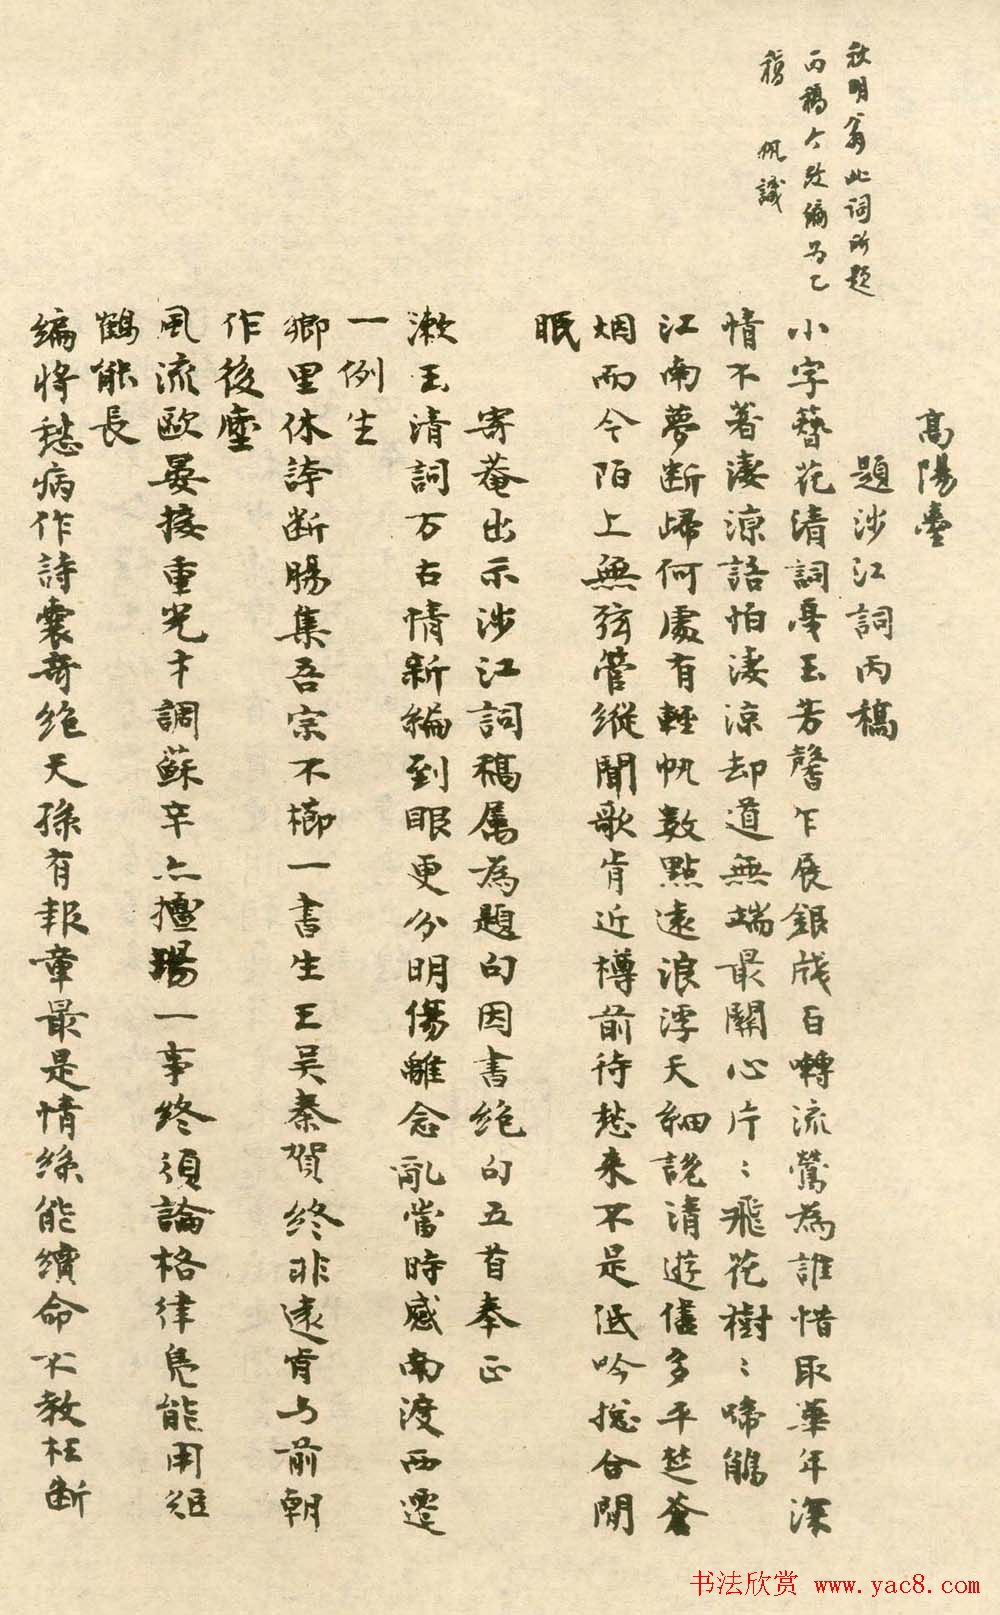 秋明翁此詞所題
丙稿今改编為乙
稿　帆識
高陽臺
題涉江詞丙稿
小字簪花清詞戛玉芳馨乍展銀牋百囀流鶯為誰惜取華年深
情不著淒涼語怕淒涼却道無端最關心片〻飛花樹〻啼鵑
江南夢斷歸何處有輕帆數點遠浪浮天細說清遊儘多平楚蒼
烟而今陌上無弦管縱聞歌肯近樽前待愁来不是低吟揔合閒
眠
寄菴出示涉江詞稿属為題句因書绝句五首奉正
漱玉清詞万古情新編到眼更分明傷離念亂當時感南渡西遷
一例生
鄉里休誇断腸集吾宗不櫛一書生王吴秦贺终非遠肯与前朝
作後塵
風流歐晏接重光才調蘇辛亦擅場一事终須論格律凫能用短
鶴能長
编将愁病作詩囊奇绝天孫有報章最是情絲能續命不教枉断
书法欣赏 www.yac8.com